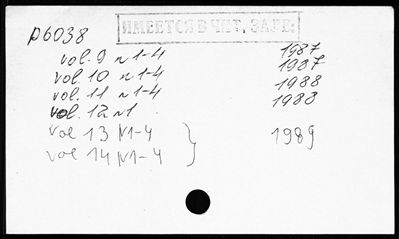 p6038 ИМЕЕТСЯ В ЧИТ. ЗАЛЕ:
vol. 9 n 1-4 1987
vol. 10 n 1-4 1987
vol. 11 n 1-4 1988
vol. 12 n1 1988
vol 13 N1-4 } 1989
vol 14 N1-4